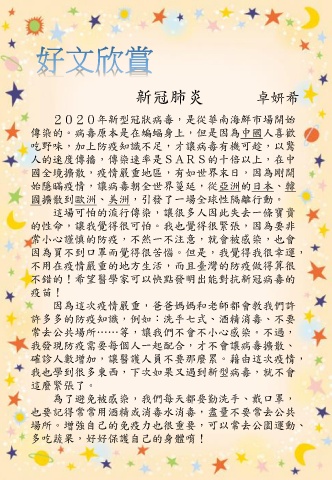 好文欣賞
新冠肺炎　卓妍希
２０２０年新型冠狀病毒，是從華南海鮮市場開始
傳染的。病毒原本是在蝙蝠身上，但是因為中國人喜歡
吃野味，加上防疫知識不足，才讓病毒有機可趁，以驚
人的速度傳播，傳染速率是ＳＡＲＳ的十倍以上，在中
國全境擴散，疫情嚴重地區，有如世界末日，因為剛開
始隱瞞疫情，讓病毒朝全世界蔓延，從亞洲的日本、韓
國擴散到歐洲、美洲，引發了一場全球性隔離行動。
這場可怕的流行傳染，讓很多人因此失去一條寶貴
的性命，讓我覺得很可怕。我也覺得很緊張，因為要非
常小心謹慎的防疫，不然一不注意，就會被感染，也會
因為買不到口罩而覺得很苦惱。但是，我覺得我很幸運，
不用在疫情嚴重的地方生活，而且臺灣的防疫做得算很
不錯的！希望醫學家可以快點發明出能對抗新冠病毒的
疫苗！
因為這次疫情嚴重，爸爸媽媽和老師都會教我們許
許多多的防疫知識，例如：洗手七式、酒精消毒、不要
常去公共場所……等，讓我們不會不小心感染。不過，
我發現防疫需要每個人一起配合，才不會讓病毒擴散、
確診人數增加，讓醫護人員不要那麼累。藉由這次疫情，
我也學到很多東西，下次如果又遇到新型病毒，就不會
這麼緊張了。
為了避免被感染，我們每天都要勤洗手、戴口罩，
也要記得常常用酒精或消毒水消毒，盡量不要常去公共
場所。增強自己的免疫力也很重要，可以常去公園運動、
多吃蔬果，好好保護自己的身體唷！